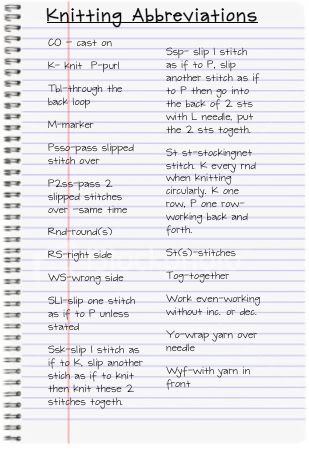 Knitting Abbreviations
CO - cast on
K- knit P-purl
Tbl-through the
back loop
M-marker
Psso-pass slipped
stitch over
P2ss-pass 2
slipped stitches
over -same time
Rnd-round(s)
RS-right side
WS-wrong side
SL1-slip one stitch
as if to P unless
stated
Ssk-slip 1 stitch as
if to K, slip another
stich as if to knit
then knit these 2
stitches togeth.
Ssp- slip 1 stitch
as if to P, slip
another stitch as if
to P then go into
the back of 2 sts
with L needle, put
the 2 sts togeth.
St st-stockingnet
stitch. K every rnd
when knitting
circularly. K one
row, P one row-
working back and
forth.
St(s)-stitches
Tog-together
Work even-working
without inc. or dec.
Yo-wrap yarn over
needle
Wyf-with yarn in
front